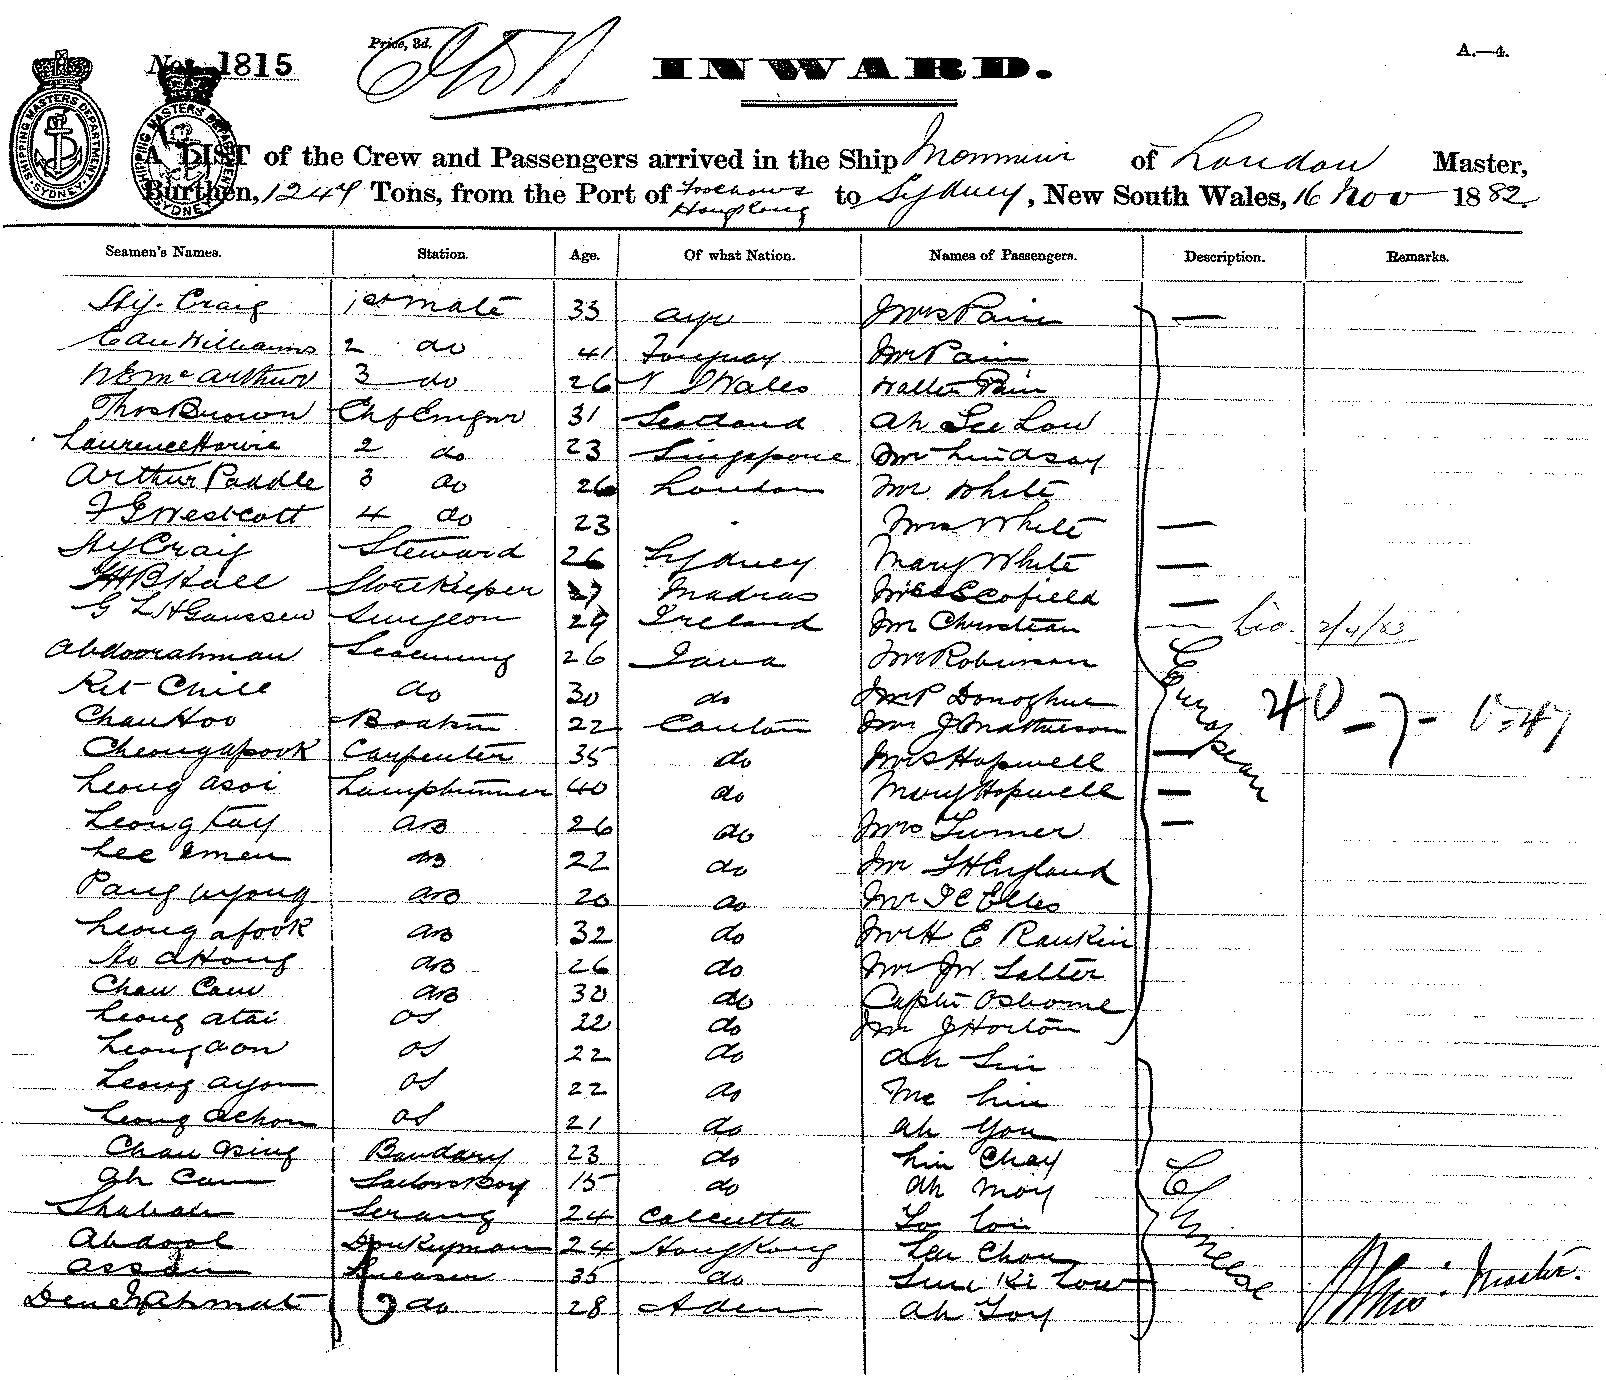 No. 1815
Price, 3d.
INWARD.
A.—4.
SHIPPING MASTERS DEPARTMENT SYDNEY
SHIPPING MASTERS DEPARTMENT SYDNEY
A LIST of the Crew and Passengers arrived in the Ship Menmuir of London Master,
Burthen, 1247 Tons, from the Port of Foochow & Hong Kong to Sydney, New South Wales, 16 Nov 1882.
Seamen's Names. Station. Age. Of what Nation. Names of Passengers. Description. Remarks.
Hy. Craig 1st Mate 33 Ayr Mrs Pain —
Williams 2 do 41 Torquay Mr Pain
McArthur 3 do 26 N S Wales Walter Pain
Thos Brown Chf Engnr 31 Scotland Ah See Low
Laurence Howie 2 do 23 Singapore Mr Lindsay
Arthur Paddle 3 do 26 London Mr White
F G Westcott 4 do 23 Mrs White —
Hy Craig Steward 26 Sydney Mary White —
Hall Storekeeper 27 Madras Miss Scofield —
G L H Gaussen Surgeon 29 Ireland Mr Christian 2/4/83
Abdoorahman Seacunny 26 Java Mr Robinson
Kit Chill do 30 do Mr P Donoghue
Chau Hoo Boatn 22 Canton Mr J Mathieson European 40 - 7 - 0.47
Cheong Apook Carpenter 35 do Mrs Hopwell —
Leong Asoi Lamptrimmer 40 do Mary Hopwell —
Leong Kay AB 26 do Mrs Turner —
Lee AB 22 do Mr England
Pang Ayong AB 20 do Mr Elles
Leong Afook AB 32 do Mr H E Rankin
Ho A Hong AB 26 do Mr JW Salter
Chau Cam AB 30 do Captn Osborne
Leong Atai OS 22 do Mr J Horton
Leong Aon OS 22 do Ah Sin
Leong Ayon OS 22 do Me Lin
Leong Achon OS 21 do Ah You
Chau Bandary 23 do Lin Chay
Ah Cam Sailors Boy 15 do Ah Moy
Serang 24 Calcutta Chinese
Abdool Donkeyman 24 Hong Kong Lee Chou
Assan Greaser 35 do Low
do 28 Aden Ah Toy
Master.